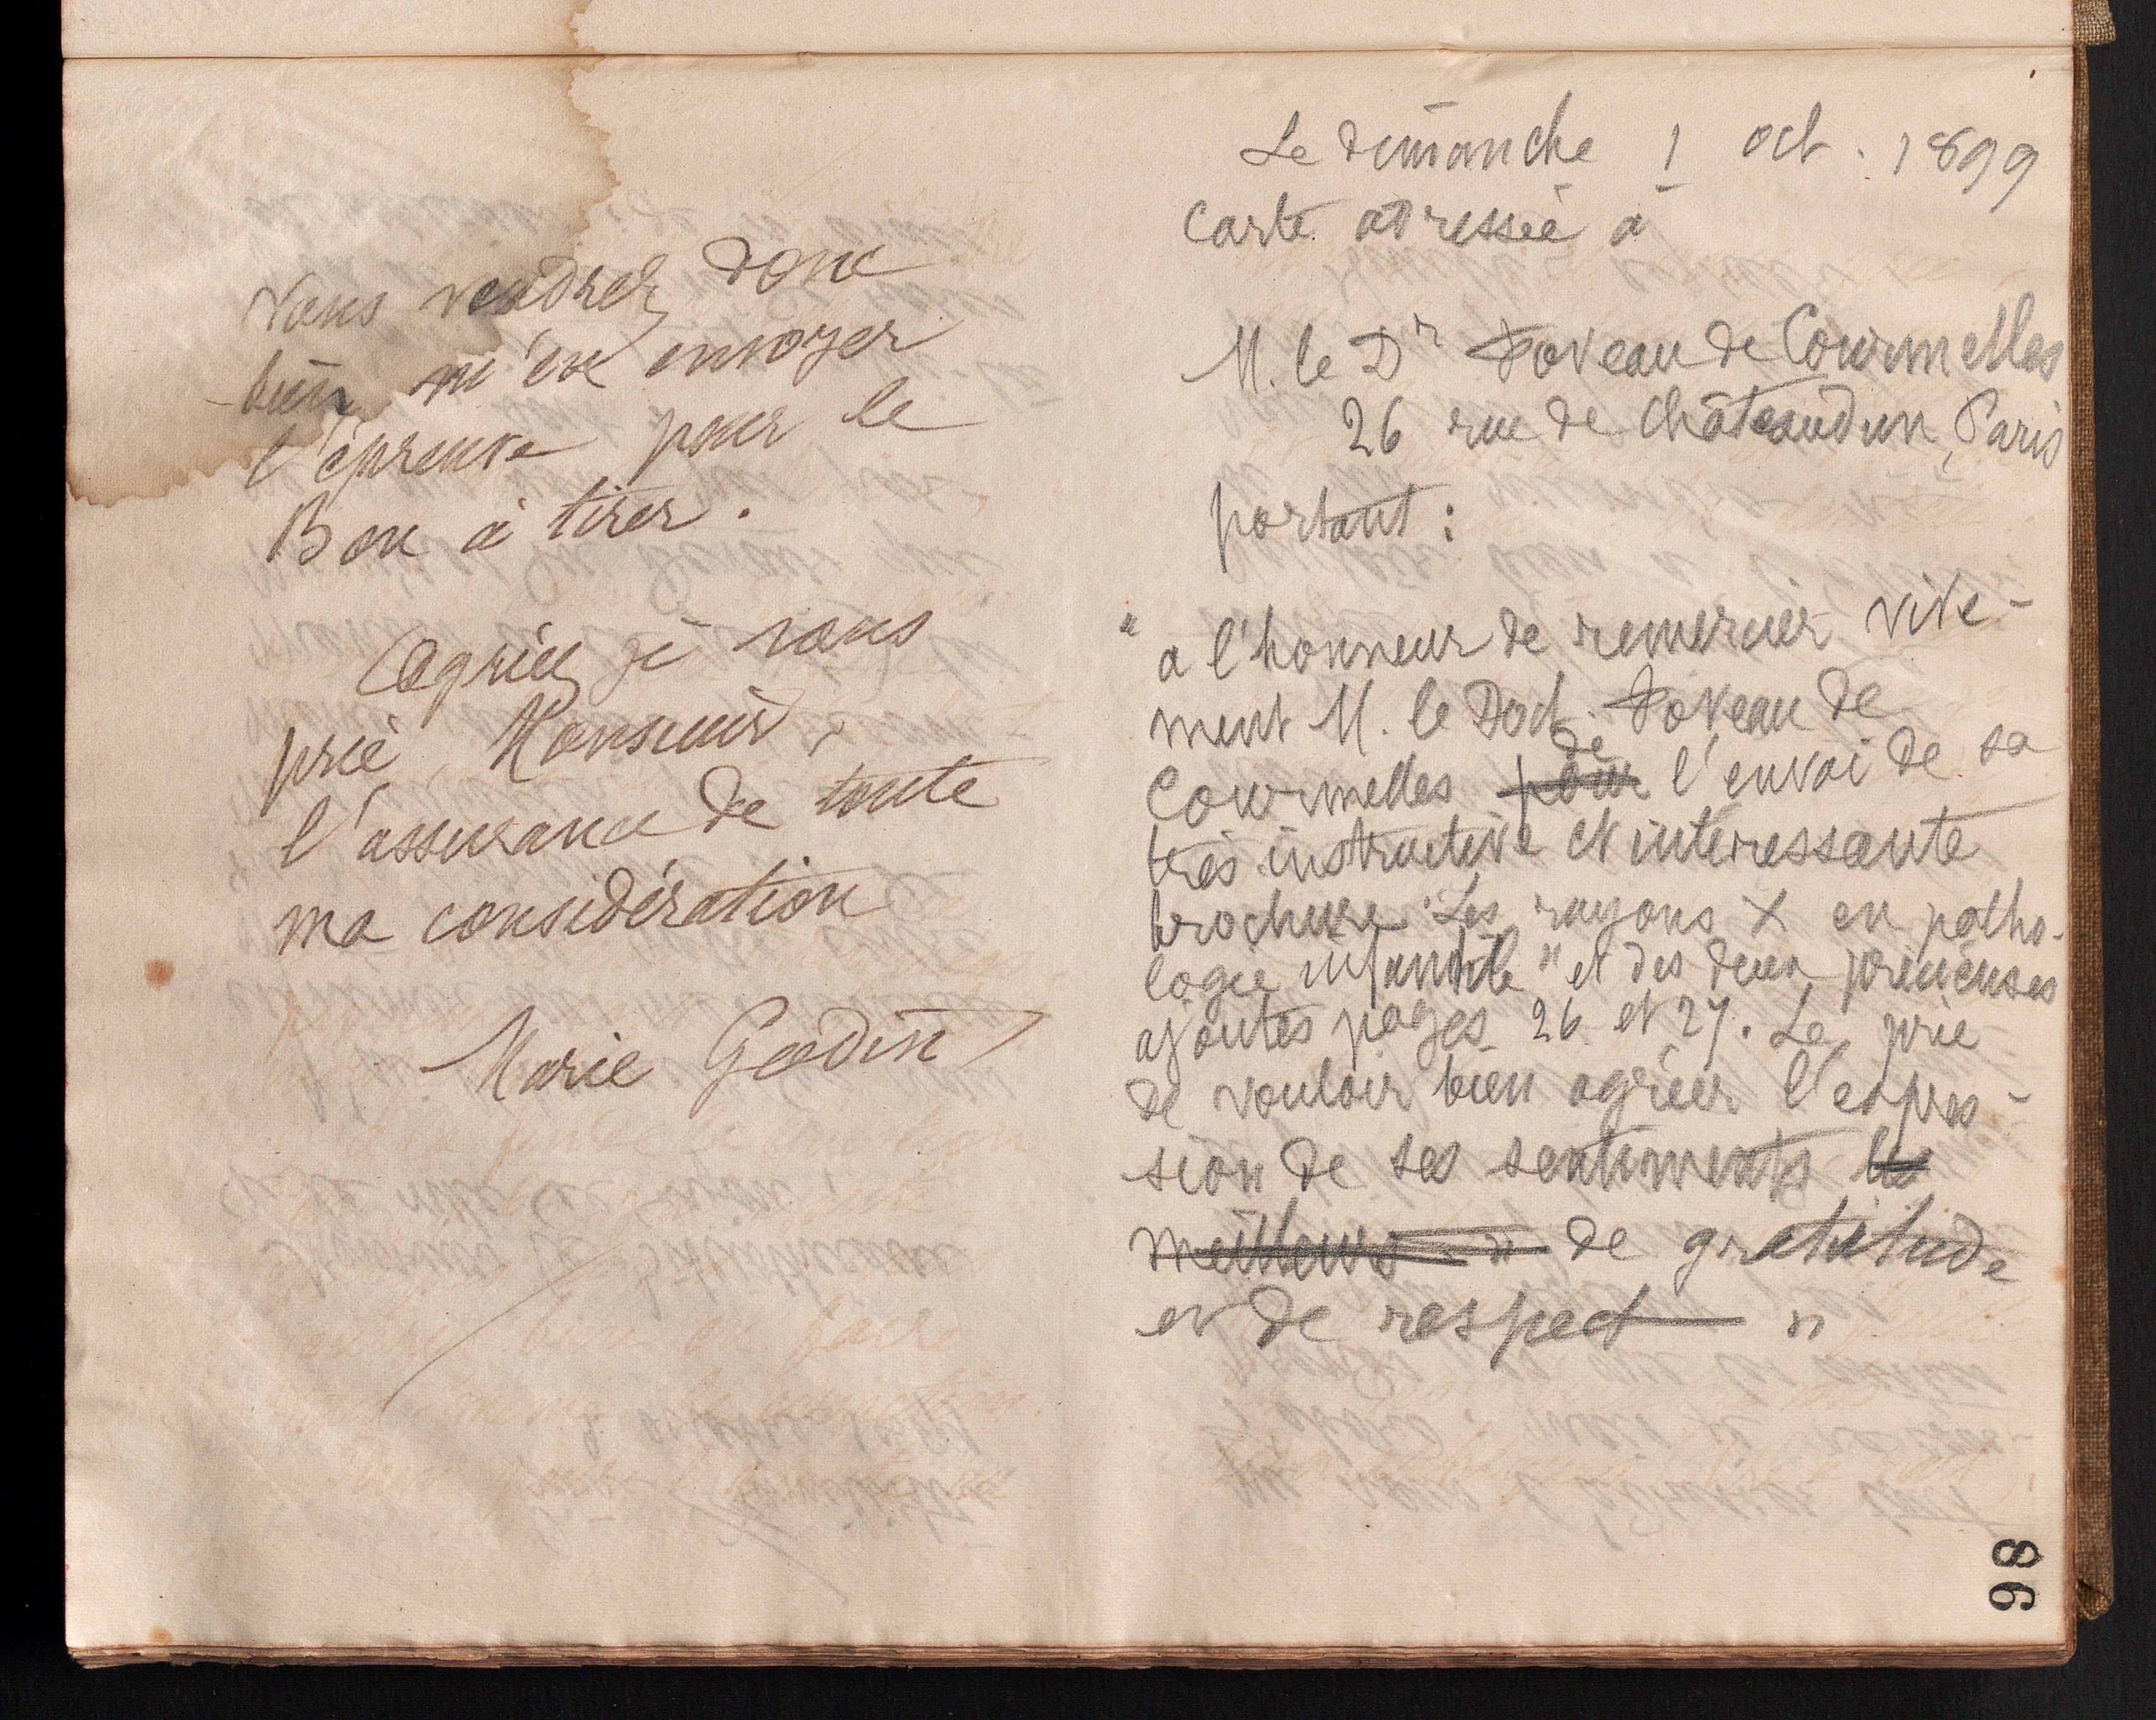 Vous voudrez donc
bien m'en envoyer
l'épreuve pour le
Bon à tirer.
Agréez je vous
prie, Monsieur,
l'assurance de toute
ma considération
Marie Godin
Le dimanche 1 oct. 1899
Carte adressée à
M. le Dr Foveau de Courmelles
26 rue de Châteaudun, Paris
portant :
"a l'honneur de remercier vive-
ment M. le Doct. Foveau de
Courmelles pour de l'envoi de sa
très instructive et intéressante
brochure "Les rayons X en patho-
logie infantile" et des deux précieuses
ajoutes pages 26 et 27. Le prie
de vouloir bien agréer l'expres-
sion de ses sentiments les
meilleurs " de gratitude
et de respect "
98